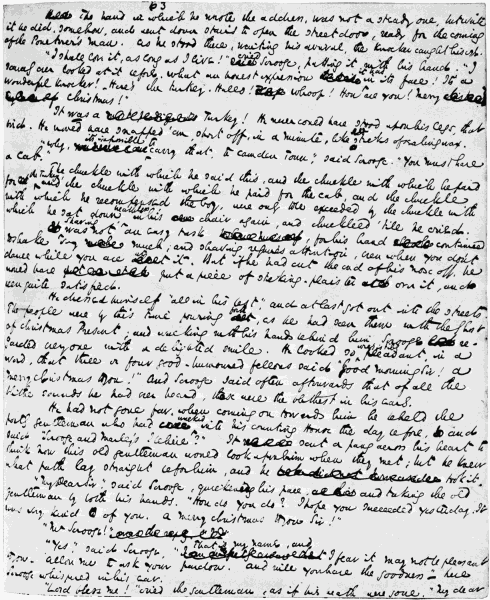 63
The hand in which he wrote the address, was not a steady one, but write
it he did, somehow, and went down stairs to open the street door, ready for the coming
of the Poulterer's man. As he stood there, waiting his arrival, the knocker caught his eye.
"I shall love it, as long as I live!" cried Scrooge, patting it with his hand. "I
scarcely ever looked at it before. What an honest expression it has in its face. It's a
wonderful knocker! Here's the turkey. Hallo! Whoop! How are you! Merry
Christmas!"
It was a Turkey! He never could have stood upon his legs, that
bird. He would have snapped 'em short off, in a minute, like sticks of sealing wax.
"Why, it's impossible to carry that to Camden Town" said Scrooge. "You must have
a cab."
The chuckle with which he said this, and the chuckle with which he paid
for the turkey and the chuckle with which he paid for the cab, and the chuckle
with which he recompensed the boy, were only to be exceeded by the chuckle with
which he sat down in his chair again, and chuckled 'till he cried.
Shaving was not an easy task, for his hand continued
to shake very much; and shaving requires attention, even when you don't
dance while you are at it. But if he had cut the end of his nose off, he
would have put a piece of sticking-plaister over it, and
been quite satisfied.
He dressed himself "all in his best", and at last got out into the streets.
The people were by this time pouring forth, as he had seen them with the Ghost
of Christmas Present; and walking with his hands behind him, Scrooge re-
garded every one with a delighted smile. He looked so pleasant, in a
word, that three or four good-humoured fellows said "Good morning Sir! A
merry Christmas to you!" And Scrooge said often afterwards that of all the
blithe sounds he had ever heard, those were the blithest in his ears.
He had not gone far, when coming on towards him he beheld the
portly gentleman who had walked into his counting House the day before, and
said "Scrooge and Marley's I believe?" It sent a pang across his heart to
think how this old gentleman would look upon him when they met; but he knew
what path lay straight before him, and he took it.
"My dear Sir" said Scrooge, quickening his pace, and taking the old
gentleman by both his hands. "How do you do? I hope you succeeded yesterday. It
was very kind of you. A merry Christmas to you Sir!"
"Mr Scrooge?"
"Yes" said Scrooge. "That is my name, and I fear it may not be pleasant
to you. Allow me to ask your pardon. And will you have the goodness" – here
Scrooge whispered in his ear.
"Lord bless me!" cried the gentleman, as if his breath were gone. "My dear